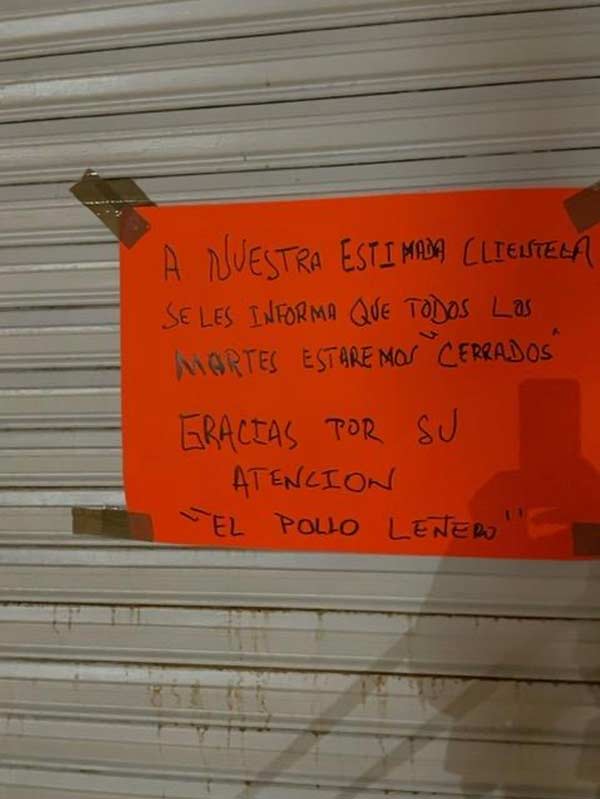 A NUESTRA ESTIMADA CLIENTELA
SE LES INFORMA QUE TODOS LOS
MARTES ESTAREMOS "CERRADOS"
GRACIAS POR SU
ATENCION
"EL POLLO LEÑERO"